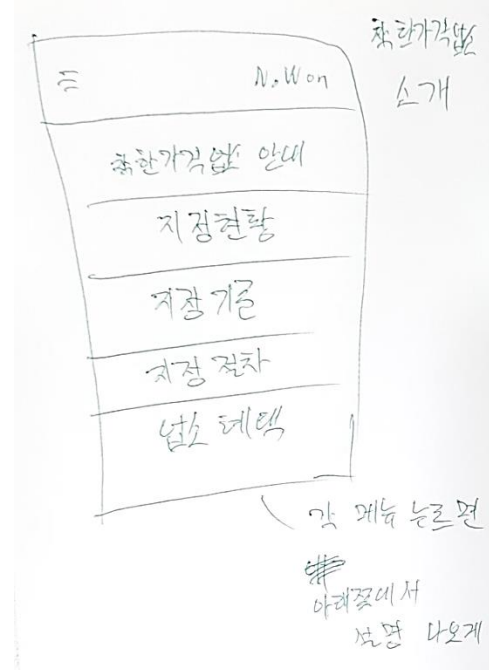 착한가격업소
소개
N.Won
착한가격업소 안내
지정현황
지정 기준
지정 절차
업소 혜택
각 메뉴 누르면
아래쪽에서
설명 나오게